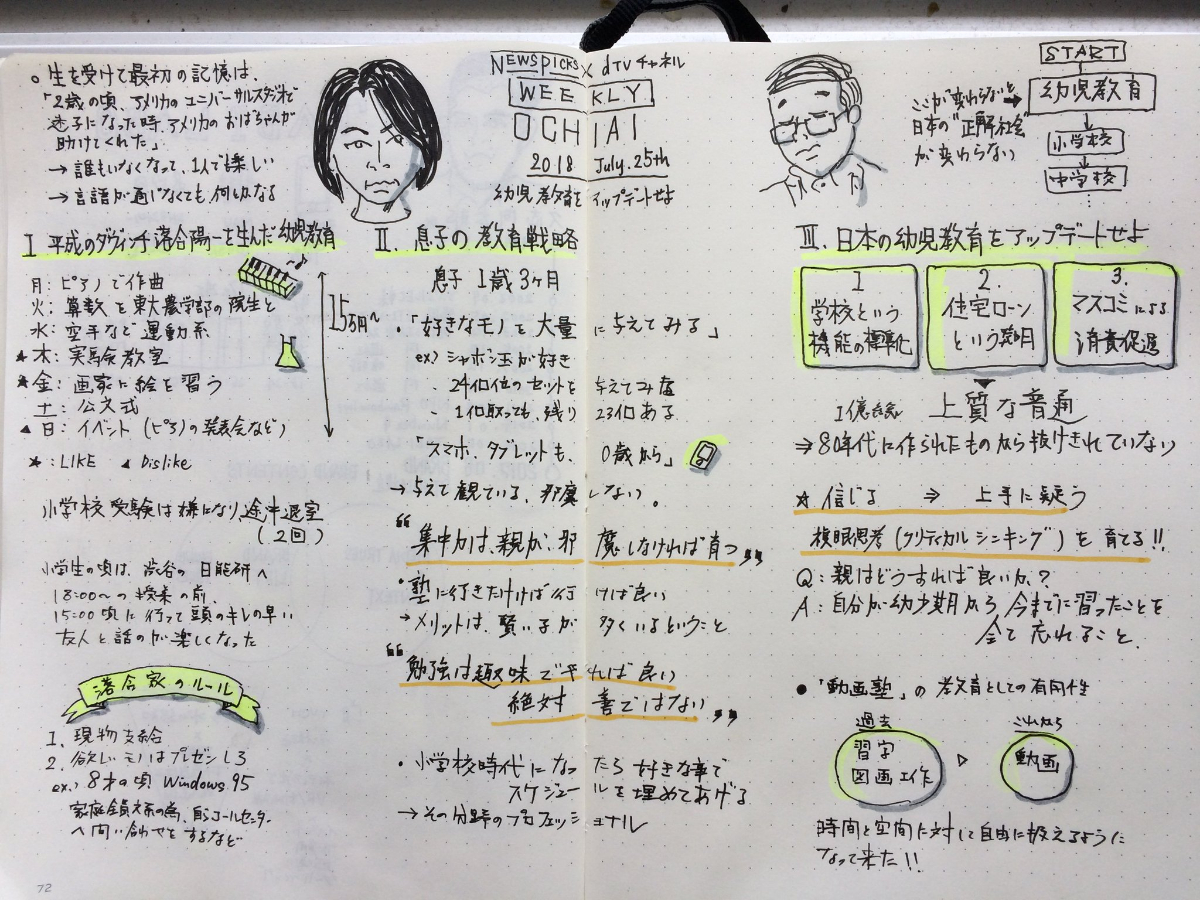 NEWSPICKS × dTVチャネル
WEEKLY
OCHIAI
2018 July.25th
幼児教育をアップデートせよ
○ 生を受けて最初の記憶は、
「2歳の頃、アメリカのユニバーサルスタジオで
迷子になった時、アメリカのおばちゃんが
助けてくれた」
→ 誰もいなくなって、1人で楽しい
→ 言語が通じなくても、何とかなる
I 平成のダヴィンチ落合陽一を生んだ幼児教育
月:ピアノで作曲
火:算数を東大農学部の院生と
水:空手など運動系
★木:実験教室
★金:画家に絵を習う
土:公文式
▲日:イベント(ピアノの発表会など)
15万円〜
★:LIKE ▲ Dislike
小学校受験は嫌になり、途中退室
(2回)
小学生の頃は、渋谷の日能研へ
18:00〜の授業の前
15:00頃に行って頭のキレの早い
友人と話のが楽しくなった
落合家のルール
1. 現物支給
2. 欲しいモノはプレゼンしろ
ex.) 8才の頃 Windows 95
家庭全員
の為、自らコールセンター
へ問い合わせをするなど
II. 息子の教育戦略
息子 1歳3ヶ月
・「好きなモノを大量に与えてみる」
ex.) シャボン玉が好き
、24個位のセットを与えてみ
、1個取っても、残り23個ある
「スマホ、タブレットも、0歳から」
→ 与えて観ている、邪魔しない。
“集中力は、親が、邪魔しなければ育つ”
・塾に行きたければ行けば良い
→ メリットは、賢い子が多くいるということ
“勉強は趣味でやれば良い
絶対善ではない”
・小学校時代になったら好きな事で
スケジュールを埋めてあげる
→ その分野のプロフェッショナル
START
幼児教育
小学校
中学校
⋮
ここが変わらないと→
日本の"正解社会"
が変わらない
III. 日本の幼児教育をアップデートせよ
1
学校という
機能の標準化
2.
住宅ローン
という発明
3.
マスコミによる
消費促進
▼
1億総 上質な普通
⇒ 80年代に作られたものから抜けきれていない
★ 信じる ⇒ 上手に疑う
複眼思考(クリティカルシンキング)を育てる!!
Q:親はどうすれば良いか?
A:自分が幼少期から今までに習ったことを
全て忘れること
●「動画塾」の教育としての有用性
過去
習字
図画工作
▷
これから
動画
時間と空間に対して自由に扱えるように
なって来た!!
72